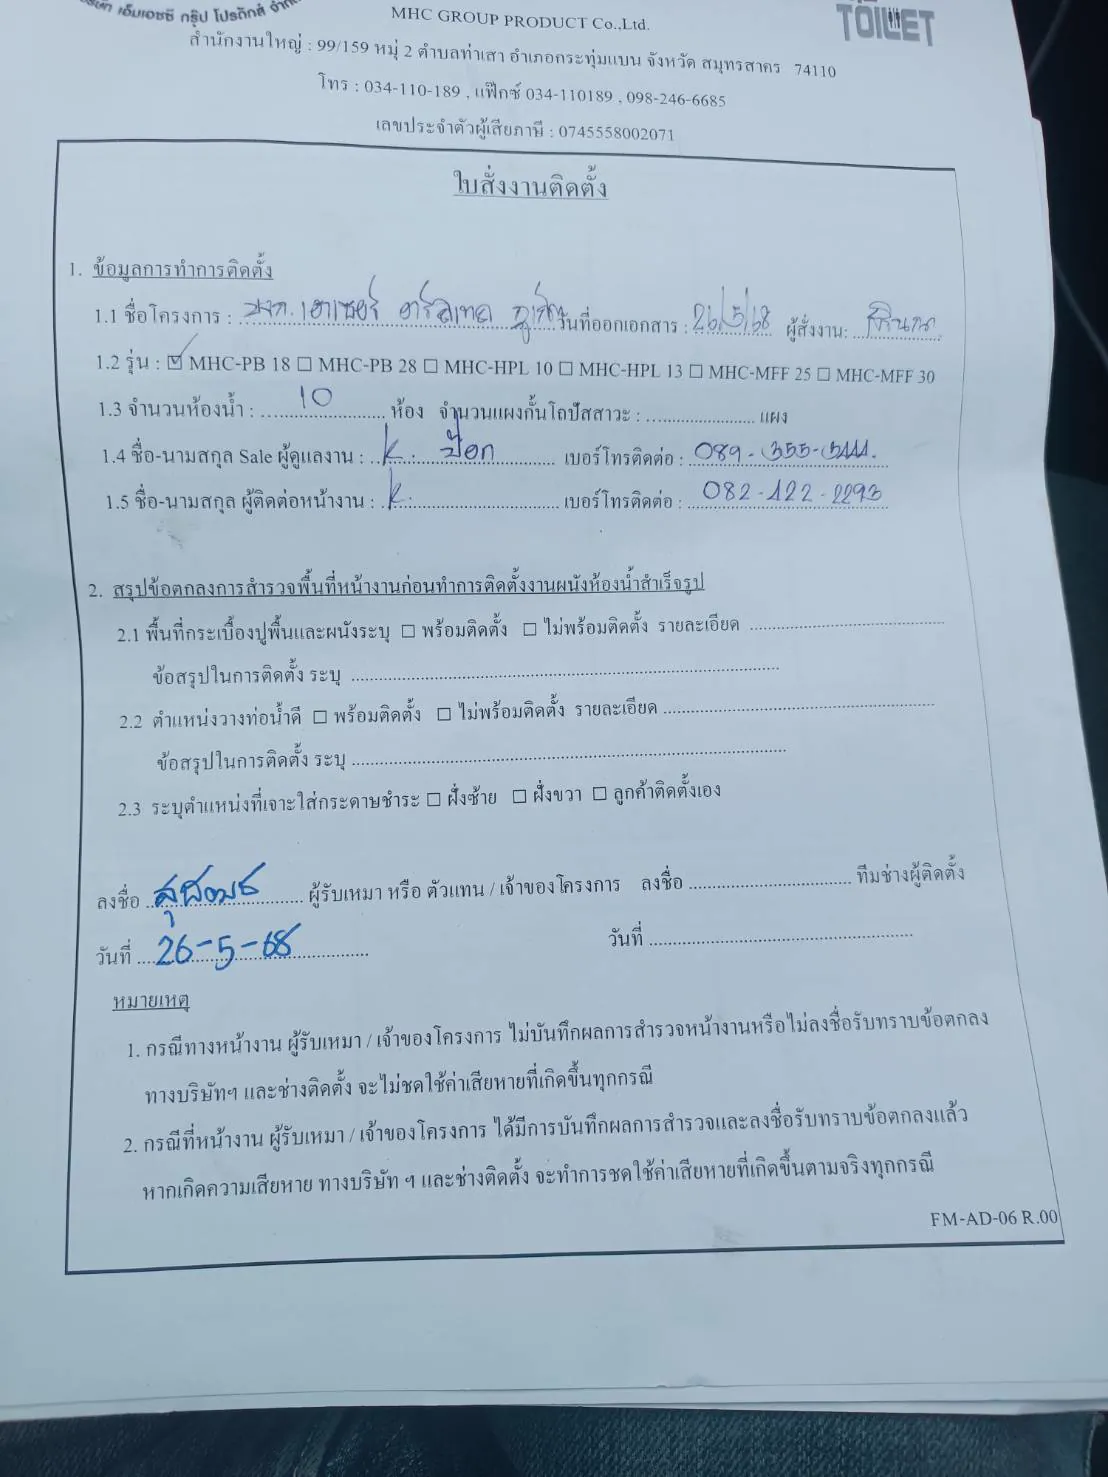 เอ็มเอชซี กรุ๊ป โปรดักส์
TOILET
MHC GROUP PRODUCT Co.,Ltd.
สำนักงานใหญ่ : 99/159 หมู่ 2 ตำบลท่าเสา อำเภอกระทุ่มแบน จังหวัด สมุทรสาคร 74110
โทร : 034-110-189 , แฟ๊กซ์ 034-110189 , 098-246-6685
เลขประจำตัวผู้เสียภาษี : 0745558002071
ใบสั่งงานติดตั้ง
1. ข้อมูลการทำการติดตั้ง
1.1 ชื่อโครงการ : วันที่ออกเอกสาร : 26/5/68 ผู้สั่งงาน:
1.2 รุ่น : ☑ MHC-PB 18 ☐ MHC-PB 28 ☐ MHC-HPL 10 ☐ MHC-HPL 13 ☐ MHC-MFF 25 ☐ MHC-MFF 30
1.3 จำนวนห้องน้ำ : 10 ห้อง จำนวนแผงกั้นโถปัสสาวะ : ............ แผง
1.4 ชื่อ-นามสกุล Sale ผู้ดูแลงาน : K. ป๊อก เบอร์โทรติดต่อ : 089-355-5444.
1.5 ชื่อ-นามสกุล ผู้ติดต่อหน้างาน : K. เบอร์โทรติดต่อ : 082-422-2293
2. สรุปข้อตกลงการสำรวจพื้นที่หน้างานก่อนทำการติดตั้งงานผนังห้องน้ำสำเร็จรูป
2.1 พื้นที่กระเบื้องปูพื้นและผนังระบุ ☐ พร้อมติดตั้ง ☐ ไม่พร้อมติดตั้ง รายละเอียด ............
ข้อสรุปในการติดตั้ง ระบุ ............
2.2 ตำแหน่งวางท่อน้ำดี ☐ พร้อมติดตั้ง ☐ ไม่พร้อมติดตั้ง รายละเอียด ............
ข้อสรุปในการติดตั้ง ระบุ ............
2.3 ระบุตำแหน่งที่เจาะใส่กระดาษชำระ ☐ ฝั่งซ้าย ☐ ฝั่งขวา ☐ ลูกค้าติดตั้งเอง
ลงชื่อ ............ ผู้รับเหมา หรือ ตัวแทน / เจ้าของโครงการ ลงชื่อ ............ ทีมช่างผู้ติดตั้ง
วันที่ 26-5-68 วันที่ ............
หมายเหตุ
1. กรณีทางหน้างาน ผู้รับเหมา / เจ้าของโครงการ ไม่บันทึกผลการสำรวจหน้างานหรือไม่ลงชื่อรับทราบข้อตกลง
ทางบริษัทฯ และช่างติดตั้ง จะไม่ชดใช้ค่าเสียหายที่เกิดขึ้นทุกกรณี
2. กรณีที่หน้างาน ผู้รับเหมา / เจ้าของโครงการ ได้มีการบันทึกผลการสำรวจและลงชื่อรับทราบข้อตกลงแล้ว
หากเกิดความเสียหาย ทางบริษัท ฯ และช่างติดตั้ง จะทำการชดใช้ค่าเสียหายที่เกิดขึ้นตามจริงทุกกรณี
FM-AD-06 R.00